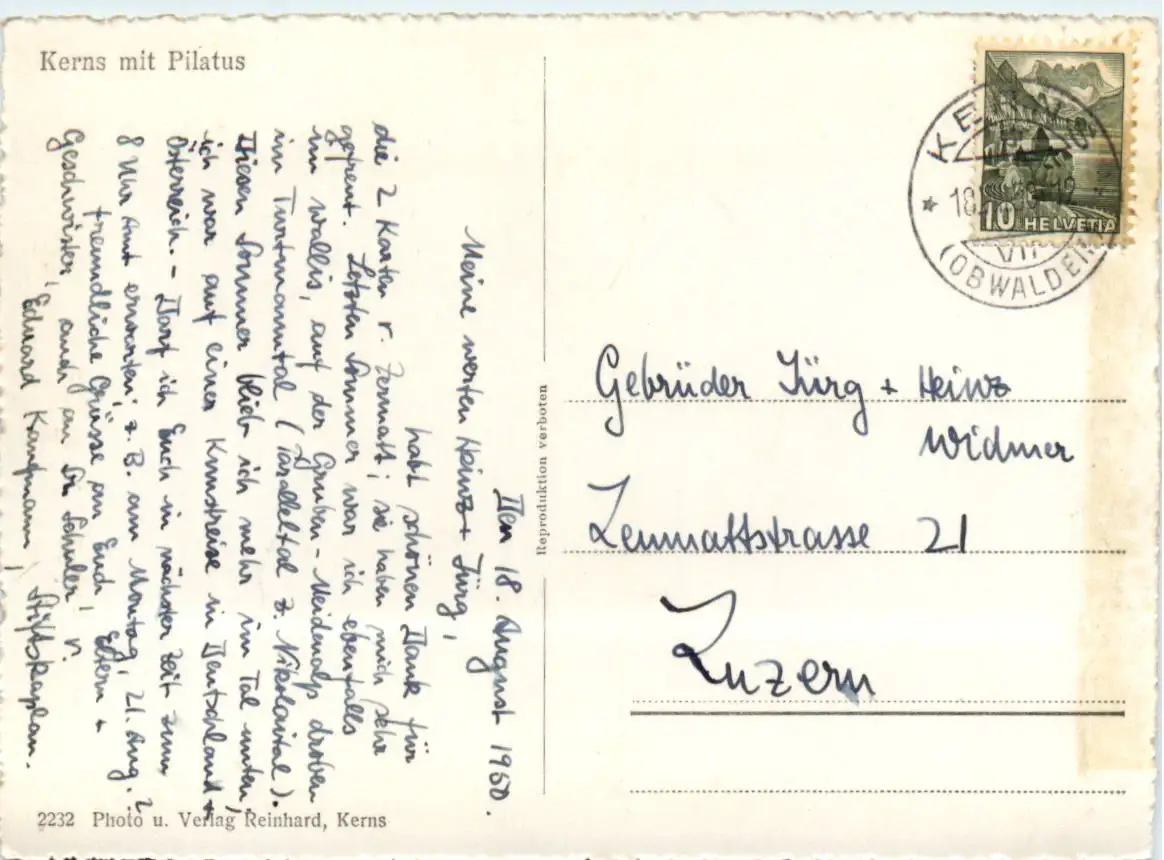 Kerns mit Pilatus
Den 18. August 1950.
Meine werten Heinz + Jürg,
habt schönen Dank für
die 2 Karten v. Zermatt; sie haben mich sehr
gefreut. Letzten Sommer war ich ebenfalls
im Wallis, auf der Gruben-Meidenalp droben
im Turtmanntal (Paralleltal z. Nikolaital).
Diesen Sommer blieb ich mehr im Tal unten,
ich war auf einer Kunstreise in Deutschland +
Österreich. - Darf ich Euch in nächster Zeit zum
8 Uhr Amt erwarten; z. B. am Montag, 21. Aug.?
freundliche Grüsse an Euch, Eltern +
Geschwister, auch an Sr. Schuler v.
Eduard Kaufmann, Stiftskaplan.
2232 Photo u. Verlag Reinhard, Kerns
Reproduktion verboten
KERNS
18
VII
(OBWALDEN)
10 HELVETIA
Gebrüder Jürg + Heinz
Widmer
Zenmattstrasse 21
Luzern